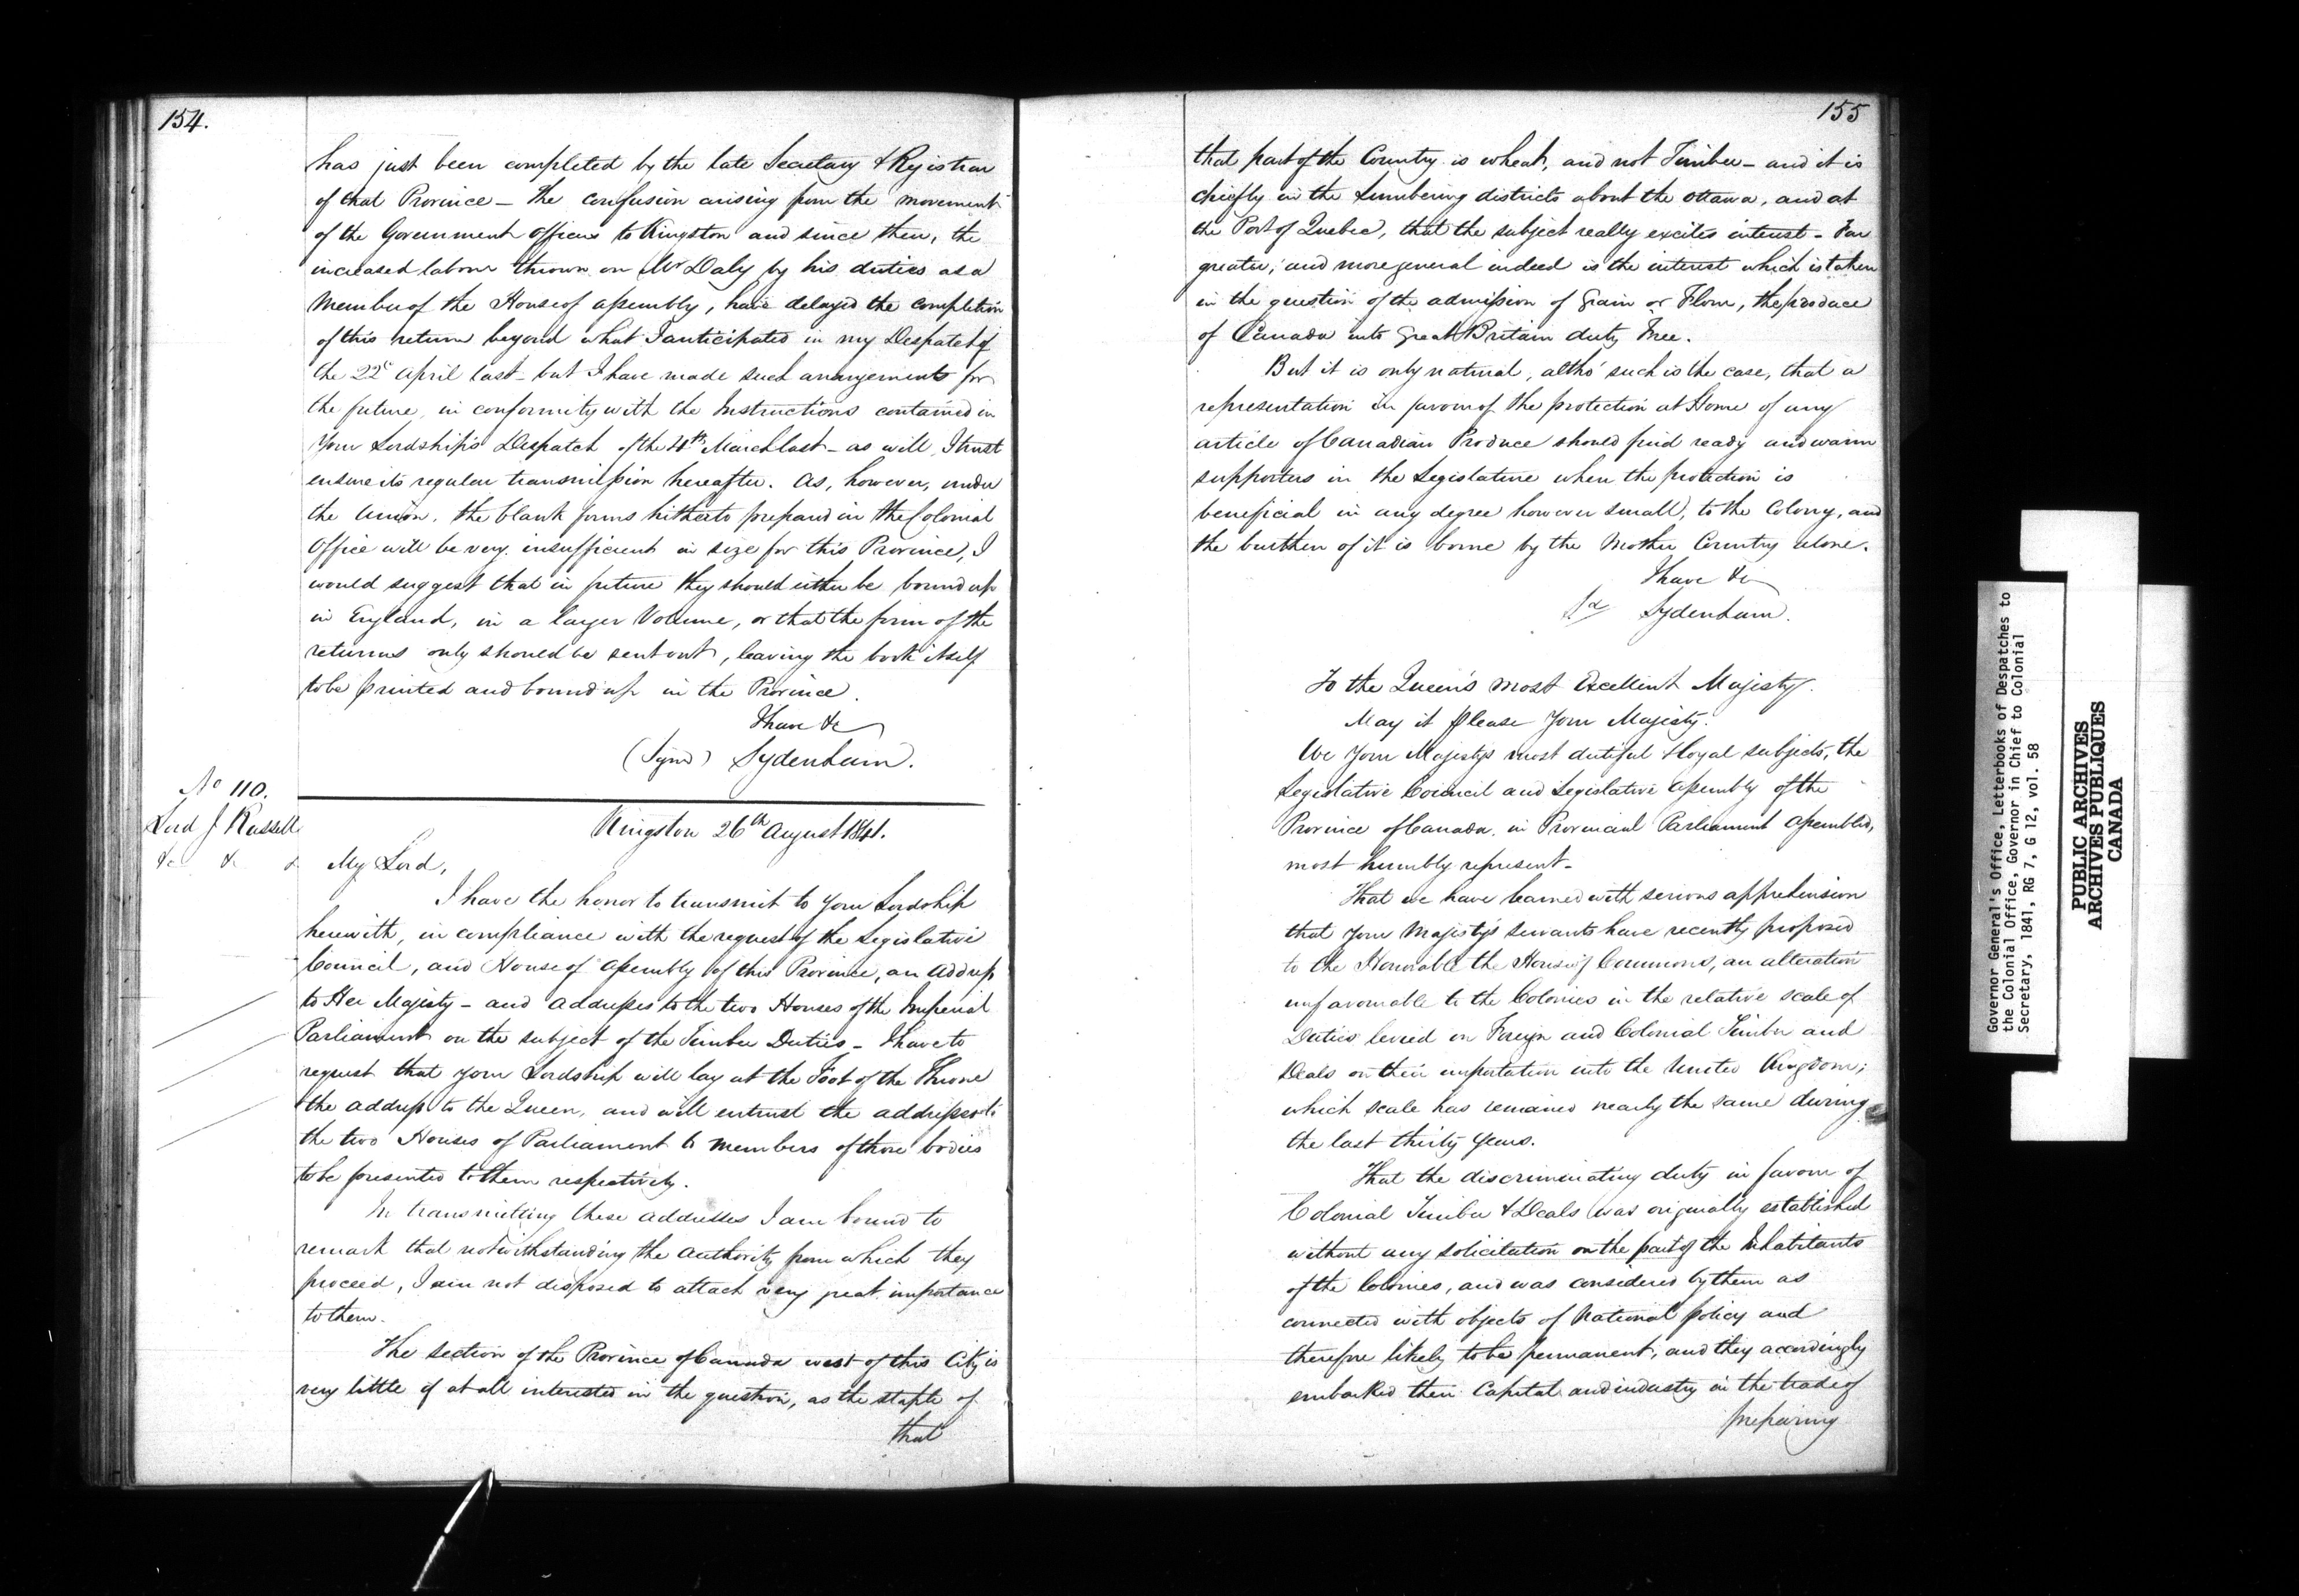 154.
has just been completed by the late Secretary & Registrar
of that Province – The confusion arising from the movement
of the Government Offices to Kingston and since then, the
increased labour thrown on Mr Daly by his duties as a
Member of the House of Assembly, have delayed the completion
of this return beyond what I anticipated in my Despatch of
the 22d April last – but I have made such arrangements for
the future, in conformity with the Instructions contained in
Your Lordship's Despatch of the 4th March last – as will, I trust
ensure its regular transmission hereafter. As, however, under
the Union, the blank forms hitherto prepared in the Colonial
Office will be very insufficient in size for this Province, I
would suggest that in future they should either be bound up
in England, in a larger Volume, or that the form of the
returns only should be sent out, leaving the book itself
to be printed and bound up in the Province.
I have &c
(Signd) Sydenham.
No 110.
Lord J Russell
&c & &
Kingston 26th August 1841.
My Lord,
I have the honor to transmit to Your Lordship
herewith, in compliance with the request of the Legislative
Council, and House of Assembly of this Province, an Address
to Her Majesty – and Addresses to the two Houses of the Imperial
Parliament on the subject of the Timber Duties – I have to
request that your Lordship will lay at the Foot of the Throne
the Address to the Queen, and will entrust the addresses to
the two Houses of Parliament to Members of those bodies
to be presented to them respectively.
In transmitting these addresses I am bound to
remark that notwithstanding the authority from which they
proceed, I am not disposed to attach very great importance
to them.
The section of the Province of Canada west of this City is
very little if at all interested in the question, as the staple of
that
155
that part of the Country is wheat, and not Timber – and it is
chiefly in the Lumbering districts about the Ottawa, and at
the Port of Quebec, that the subject really excites interest – Far
greater, and more general indeed is the interest which is taken
in the question of the admission of Grain or Flour, the produce
of Canada into Great Britain duty Free.
But it is only natural, altho' such is the case, that a
representation in favour of the protection at Home of any
article of Canadian Produce should find ready and warm
supporters in the Legislature when the protection is
beneficial in any degree however small, to the Colony, and
the burthen of it is borne by the Mother Country alone.
I have &c
Sd Sydenham.
To the Queen's Most Excellent Majesty.
May it please Your Majesty.
We Your Majesty's most dutiful & loyal subjects, the
Legislative Council and Legislative Assembly of the
Province of Canada, in Provincial Parliament Assembled,
most humbly represent –
That we have learned with serious apprehension
that Your Majesty's servants have recently proposed
to the Honorable the House of Commons, an alteration
unfavourable to the Colonies in the relative scale of
Duties levied on Foreign and Colonial Timber and
Deals on their importation into the United Kingdom;
which scale has remained nearly the same during
the last thirty years.
That the discriminating duty in favour of
Colonial Timber & Deals was originally established
without any solicitation on the part of the Inhabitants
of the Colonies, and was considered by them as
connected with objects of National policy and
therefore likely to be permanent; and they accordingly
embarked their Capital and industry in the trade of
preparing
Governor General's Office, Letterbooks of Despatches to
the Colonial Office, Governor in Chief to Colonial
Secretary, 1841, RG 7, G 12, vol. 58
PUBLIC ARCHIVES
ARCHIVES PUBLIQUES
CANADA